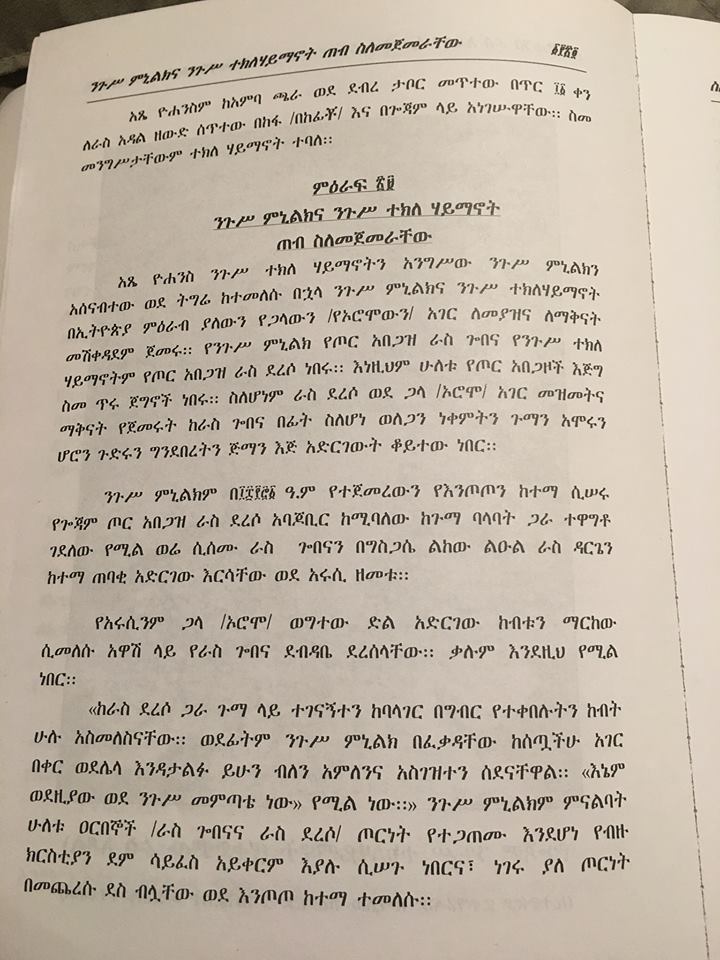 ንጉሥ ምኒልክና ንጉሥ ተክለሃይማኖት ጠብ ስለመጀመራቸው
አጼ ዮሐንስም ከአምባ ጫራ ወደ ደብረ ታቦር መጥተው በጥር ፲፩ ቀን
ለራስ አዳል ዘውድ ሰጥተው በከፋ /በከፊቾ/ እና በጐጃም ላይ አነገሡዋቸው። ስመ
መንግሥታቸውም ተክለ ሃይማኖት ተባለ።
ምዕራፍ ፳፱
ንጉሥ ምኒልክና ንጉሥ ተክለ ሃይማኖት
ጠብ ስለመጀመራቸው
አጼ ዮሐንስ ንጉሥ ተክለ ሃይማኖትን አንግሥው ንጉሥ ምኒልክን
አሰናብተው ወደ ትግሬ ከተመለሱ በኋላ ንጉሥ ምኒልክና ንጉሥ ተክለሃይማኖት
በኢትዮጵያ ምዕራብ ያለውን የጋላውን /የኦሮሞውን/ አገር ለመያዝና ለማቅናት
መሽቀዳደም ጀመሩ። የንጉሥ ምኒልክ የጦር አበጋዝ ራስ ጐበና የንጉሥ ተክለ
ሃይማኖትም የጦር አበጋዝ ራስ ደረሶ ነበሩ። እነዚህም ሁለቱ የጦር አበጋዞች እጅግ
ስመ ጥሩ ጀግኖች ነበሩ። ስለሆነም ራስ ደረሶ ወደ ጋላ /ኦሮሞ/ አገር መዝመትና
ማቅናት የጀመሩት ከራስ ጐበና በፊት ስለሆነ ወለጋን ነቀምትን ጉማን አሞሩን
ሆሮን ጉድሩን ግንደበረትን ጅማን እጅ አድርገውት ቆይተው ነበር።
ንጉሥ ምኒልክም ዓ.ም የተጀመረውን የእንጦጦን ከተማ ሲሠሩ
የጐጃም ጦር አበጋዝ ራስ ደረሶ አባጆቢር ከሚባለው ከጉማ ባላባት ጋራ ተዋግቶ
ገደለው የሚል ወሬ ሲሰሙ ራስ ጐበናን በግስጋሴ ልከው ልዑል ራስ ዳርጌን
ከተማ ጠባቂ አድርገው እርሳቸው ወደ አሩሲ ዘመቱ።
የአሩሲንም ጋላ /ኦሮሞ/ ወግተው ድል አድርገው ከብቱን ማርከው
ሲመለሱ አዋሽ ላይ የራስ ጐበና ደብዳቤ ደረሰላቸው። ቃሉም እንደዚህ የሚል
ነበር።
«ከራስ ደረሶ ጋራ ጉማ ላይ ተገናኝተን ከባላገር በግብር የተቀበሉትን ከብት
ሁሉ አስመለስናቸው። ወደፊትም ንጉሥ ምኒልክ በፈቃዳቸው ከሰጧችሁ አገር
በቀር ወደሌላ እንዳታልፉ ይሁን ብለን አምለንና አስገዝተን ሰደናቸዋል። «እኔም
ወደዚያው ወደ ንጉሥ መምጣቴ ነው» የሚል ነው።» ንጉሥ ምኒልክም ምናልባት
ሁለቱ ዐርበኞች /ራስ ጐበናና ራስ ደረሶ/ ጦርነት የተጋጠሙ እንደሆነ የብዙ
ክርስቲያን ደም ሳይፈስ አይቀርም እያሉ ሲሠጉ ነበርና፣ ነገሩ ያለ ጦርነት
በመጨረሱ ደስ ብሏቸው ወደ እንጦጦ ከተማ ተመለሱ።